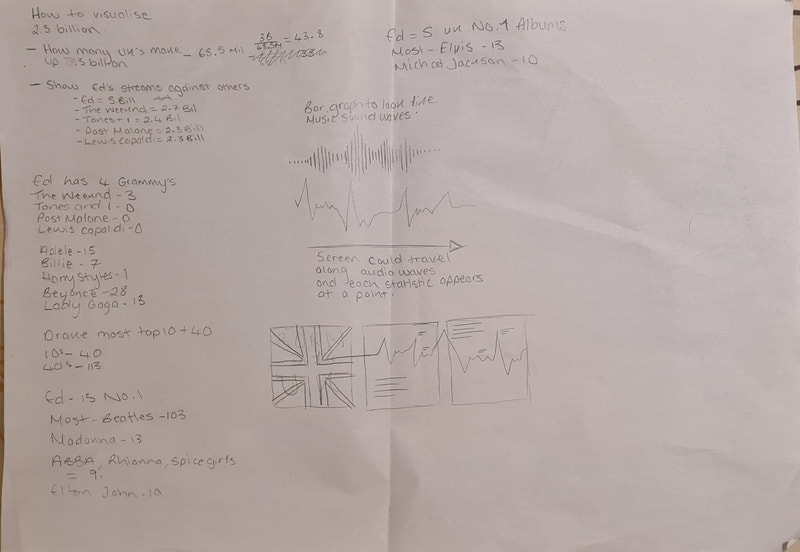 How to visualise
2.3 billion
- How many UK's make - 68.5 Mil 36/68.5M = 43.8
up 3 billion
- Show Ed's streams against others
- Ed = 3 Bill
- The Weeknd = 2.7 Bil
- Tones + 1 = 2.4 Bil
- Post Malone = 2.3 Bill
- Lewis Capaldi = 2.3 Bill
Ed has 4 Grammy's
The Weeknd - 3
Tones and I - 0
Post Malone - 0
Lewis Capaldi - 0
Adele - 15
Billie - 7
Harry Styles - 1
Beyonce - 28
Lady Gaga - 13
Drake most top 10 + 40
10s - 40
40s - 113
Ed - 13 No.1
Most - Beatles - 103
Madonna - 13
ABBA, Rhianna, Spice girls
= 9.
Elton John - 10
Ed = 5 UK No.1 Albums
Most - Elvis - 13
Michael Jackson - 10
Bar graph to look like
Music sound waves.
Screen could travel
along audio waves
and each statistic appears
at a point.